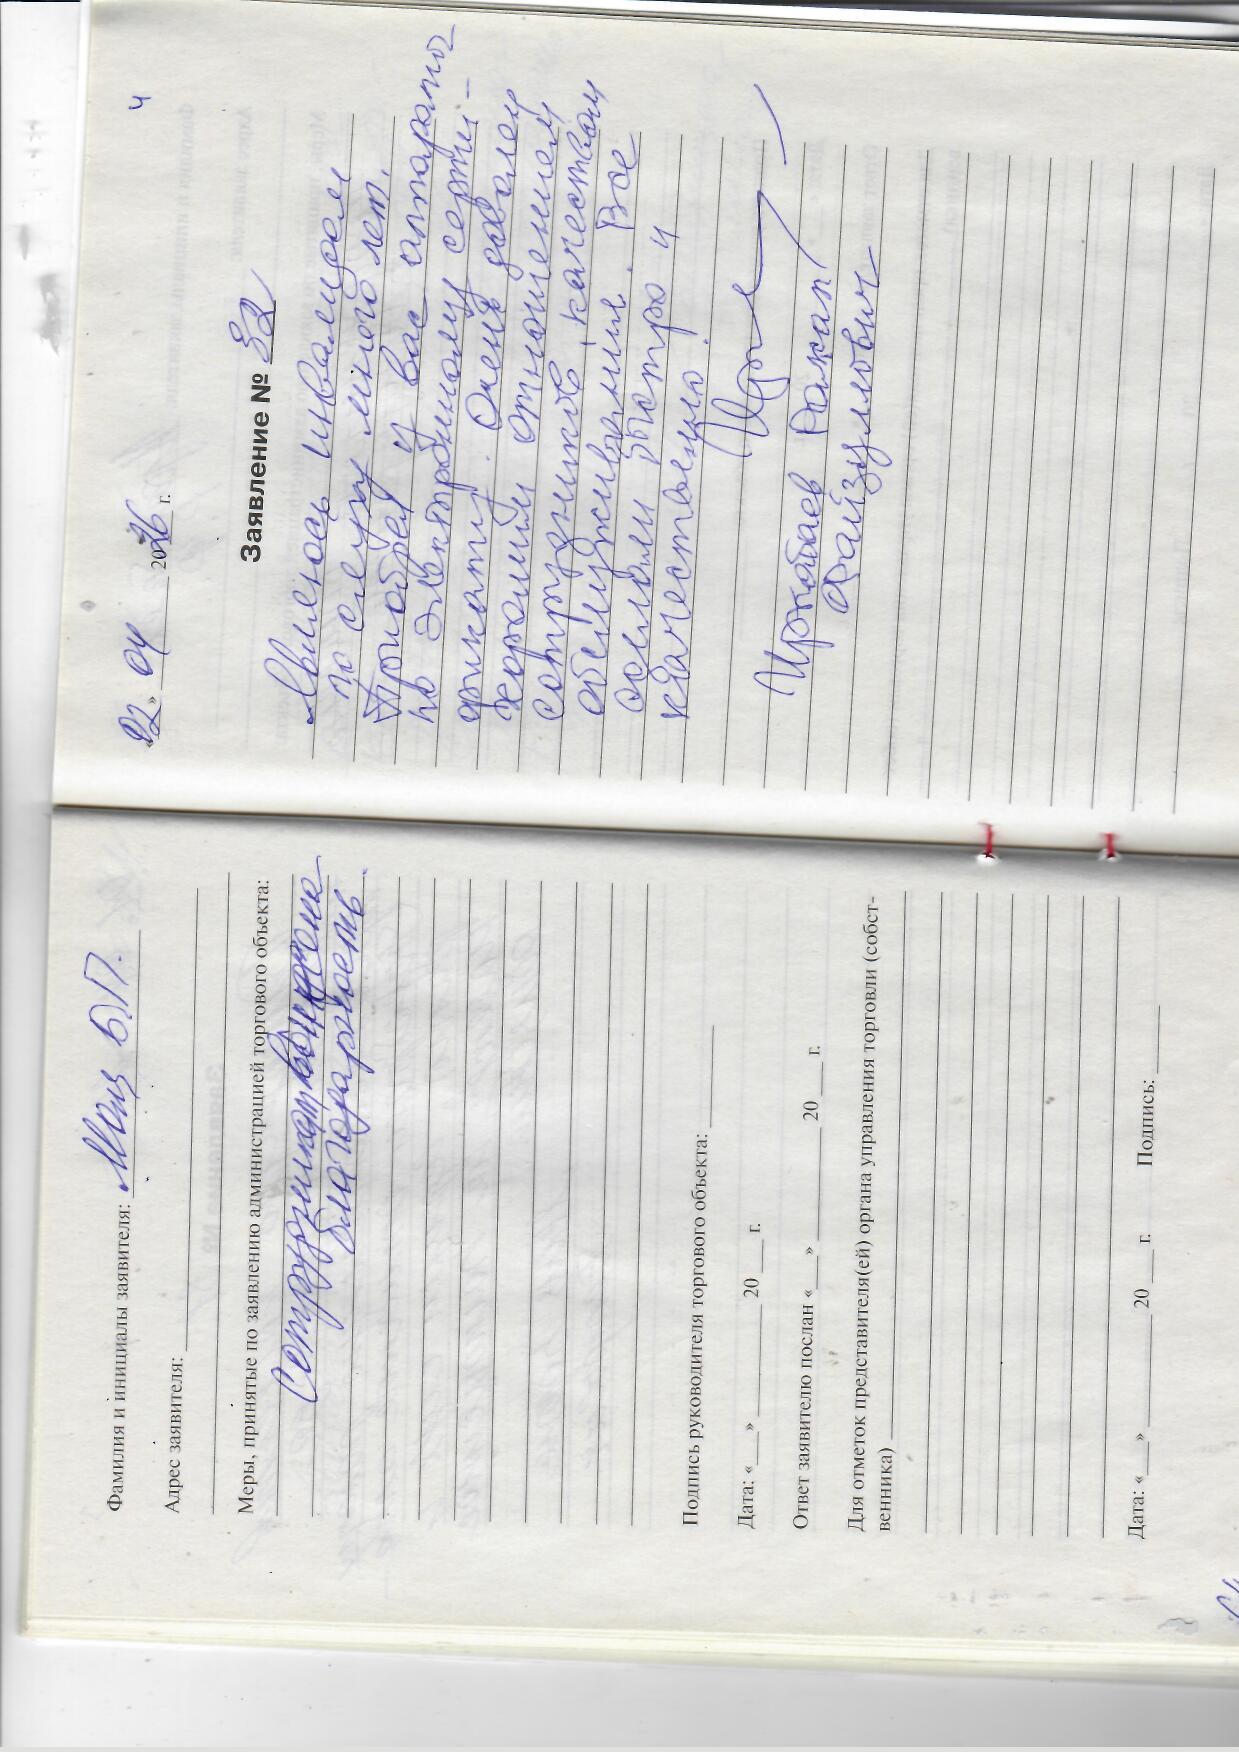 Фамилия и инициалы заявителя: Мац Б.П.
Адрес заявителя:
Меры, принятые по заявлению администрацией торгового объекта:
Сотрудникам вынесена
благодарность.
Подпись руководителя торгового объекта:
Дата: «___» ________ 20 ___ г.
Ответ заявителю послан «___» ________ 20 ___ г.
Для отметок представителя(ей) органа управления торговли (собст-
венника)
Дата: «___» ________ 20 ___ г. Подпись:
4
«22» 04 2026 г.
Заявление № 32
Являюсь инвалидом
по слуху много лет.
Приобрел у вас аппараты
по электронному серти-
фикату. Очень доволен
хорошим отношением
сотрудников, качеством
обслуживания. Все
сделали быстро и
качественно!
Рахап
Файзуллович